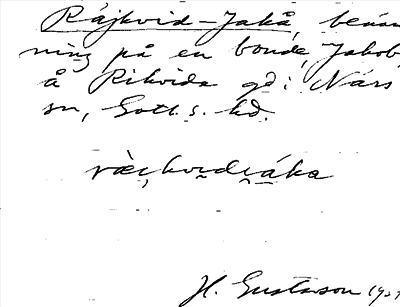 Rájkvid-Jakå, benäm
ning på en bonde, Jakob,
å Rikvide gd i Närs
sn, Gotl. s. hd.
H. Gustavson